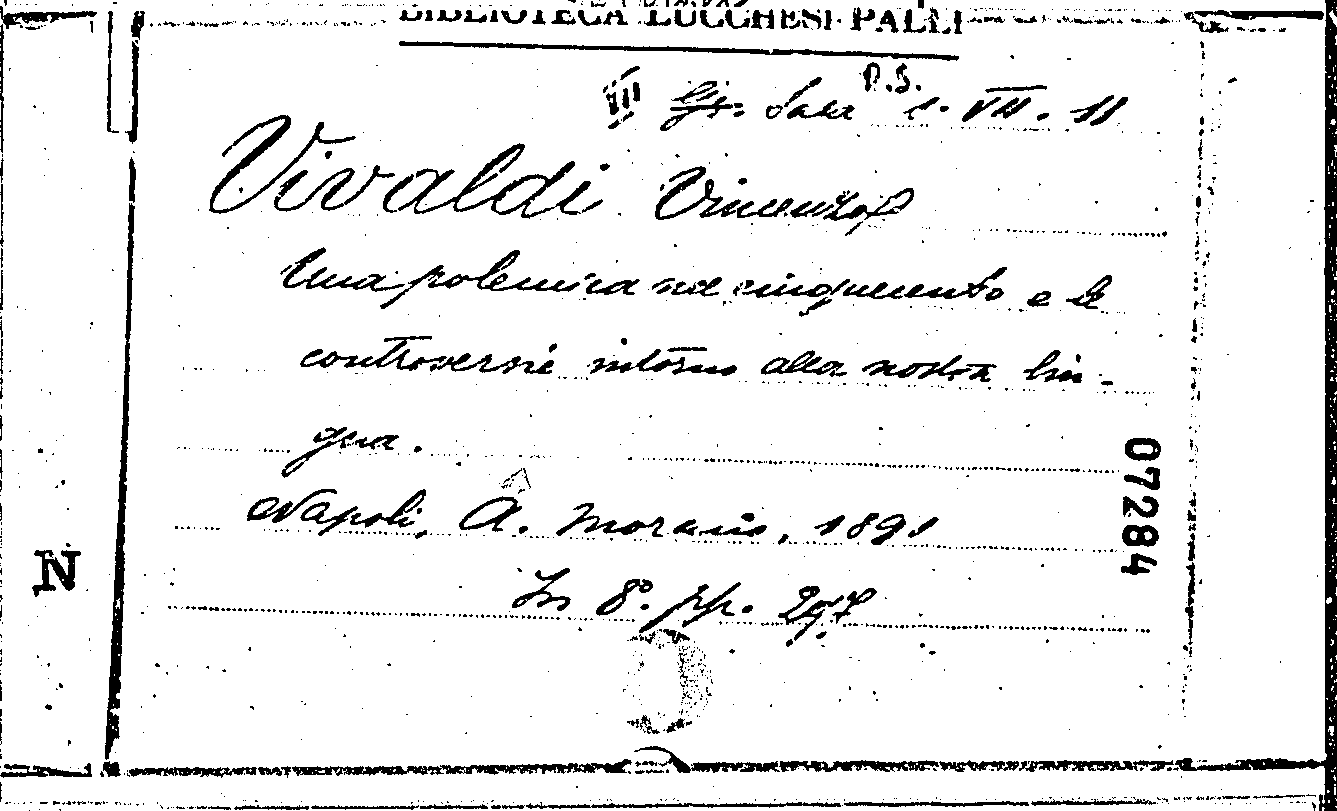 BIBLIOTECA LUCCHESI-PALLI
P.S.
III Gr. Sala 1. VII. 11
Vivaldi Vincenzo
Una polemica nel cinquecento e le
controversie intorno alla nostra lin-
gua.
Napoli, A. Morano, 1891
In 8º. pp. 297
07284
N